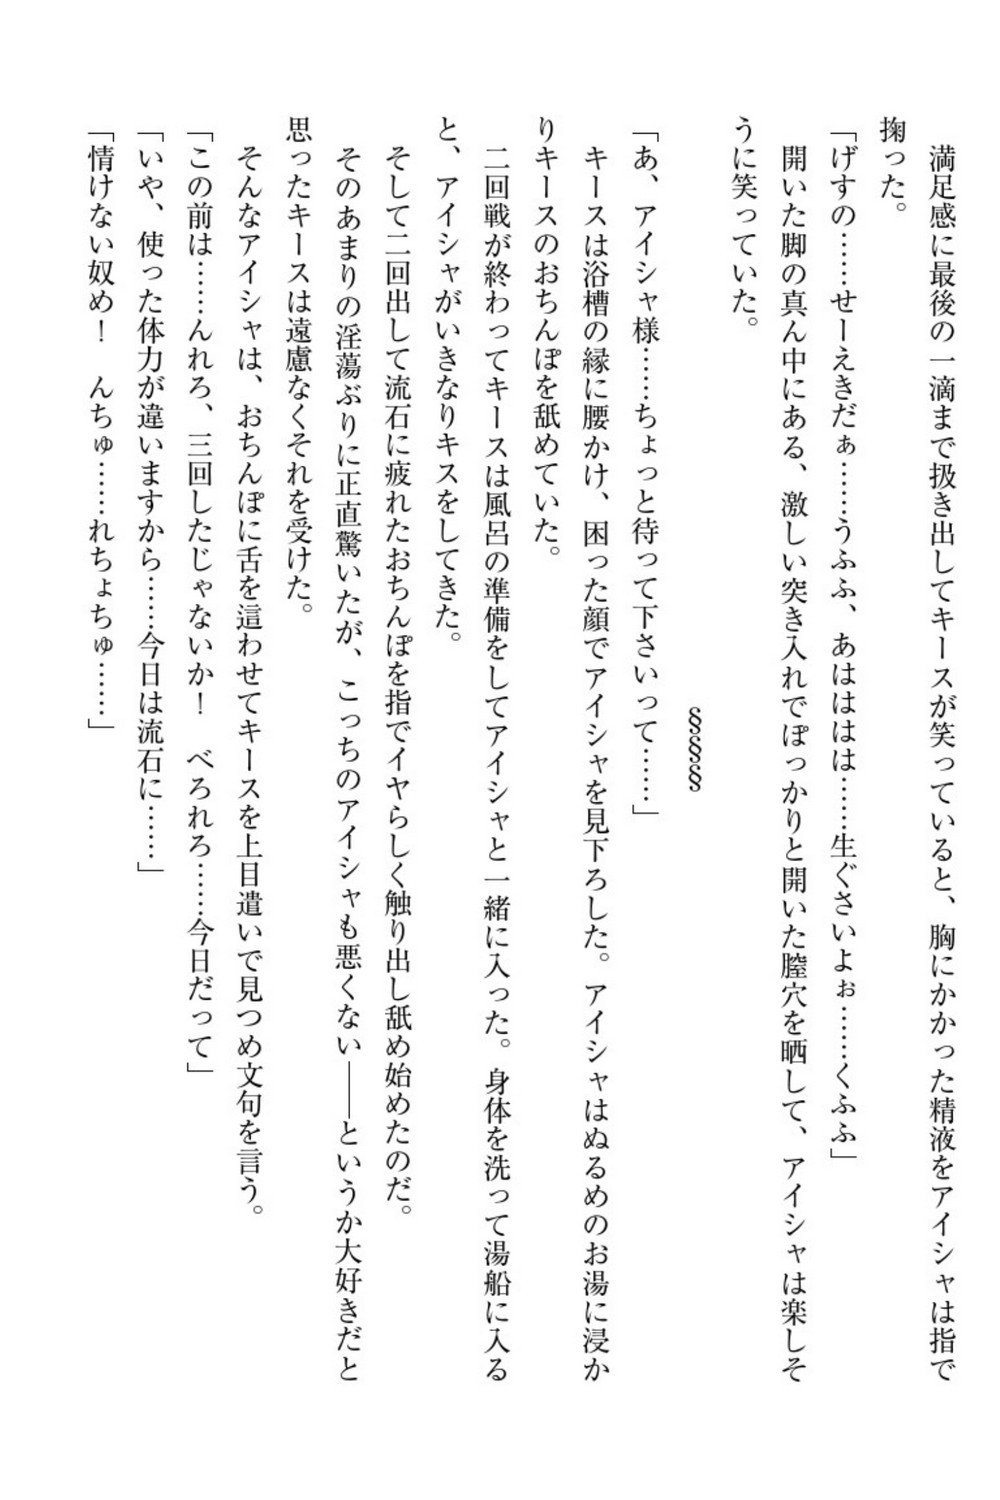 満足感に最後の一滴まで扱き出してキースが笑っていると、胸にかかった精液をアイシャは指で
掬った。
「げすの……せーえきだぁ……うふふ、あはははは……生ぐさいよぉ……くふふ」
　開いた脚の真ん中にある、激しい突き入れでぽっかりと開いた膣穴を晒して、アイシャは楽しそ
うに笑っていた。
§§§
「あ、アイシャ様……ちょっと待って下さいって……」
　キースは浴槽の縁に腰かけ、困った顔でアイシャを見下ろした。アイシャはぬるめのお湯に浸か
りキースのおちんぽを舐めていた。
　二回戦が終わってキースは風呂の準備をしてアイシャと一緒に入った。身体を洗って湯船に入る
と、アイシャがいきなりキスをしてきた。
　そして二回出して流石に疲れたおちんぽを指でイヤらしく触り出し舐め始めたのだ。
　そのあまりの淫蕩ぶりに正直驚いたが、こっちのアイシャも悪くない――というか大好きだと
思ったキースは遠慮なくそれを受けた。
　そんなアイシャは、おちんぽに舌を這わせてキースを上目遣いで見つめ文句を言う。
「この前は……んれろ、三回したじゃないか！　べろれろ……今日だって」
「いや、使った体力が違いますから……今日は流石に……」
「情けない奴め！　んちゅ……れちょちゅ……」